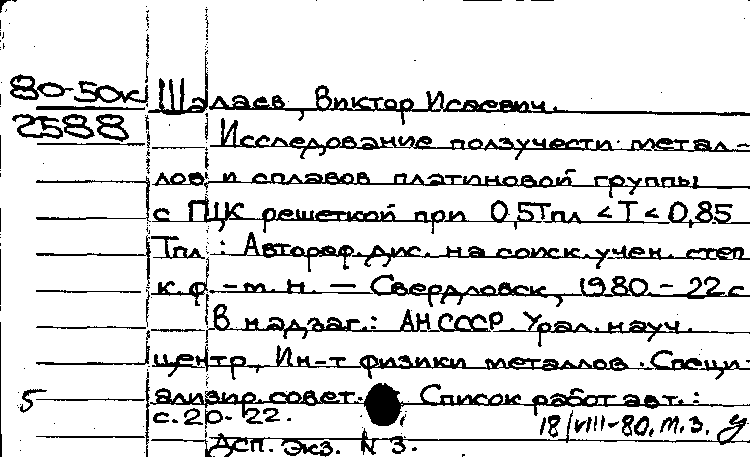 80-50к Шалаев, Виктор Исаевич.
2588 Исследование ползучести метал-
лов и сплавов платиновой группы
с ГЦК решеткой при 0,5Тпл < Т < 0,85
Тпл : Автореф. дис. на соиск. учен. степ
к.ф.-м.н. — Свердловск, 1980. - 22 с
В надзаг.: АН СССР. Урал. науч.
центр, Ин-т физики металлов. Специ-
5 ализир. совет. Список работ авт.:
с. 20-22. 18/VIII-80. М.З.
Дсп. Экз. N 3.